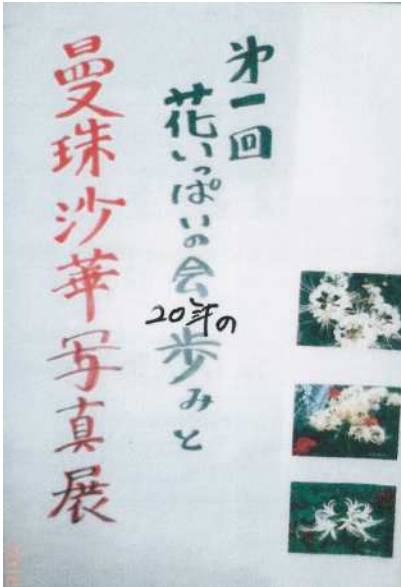 第一回
花いっぱいの会
20年の
歩みと
曼珠沙華写真展